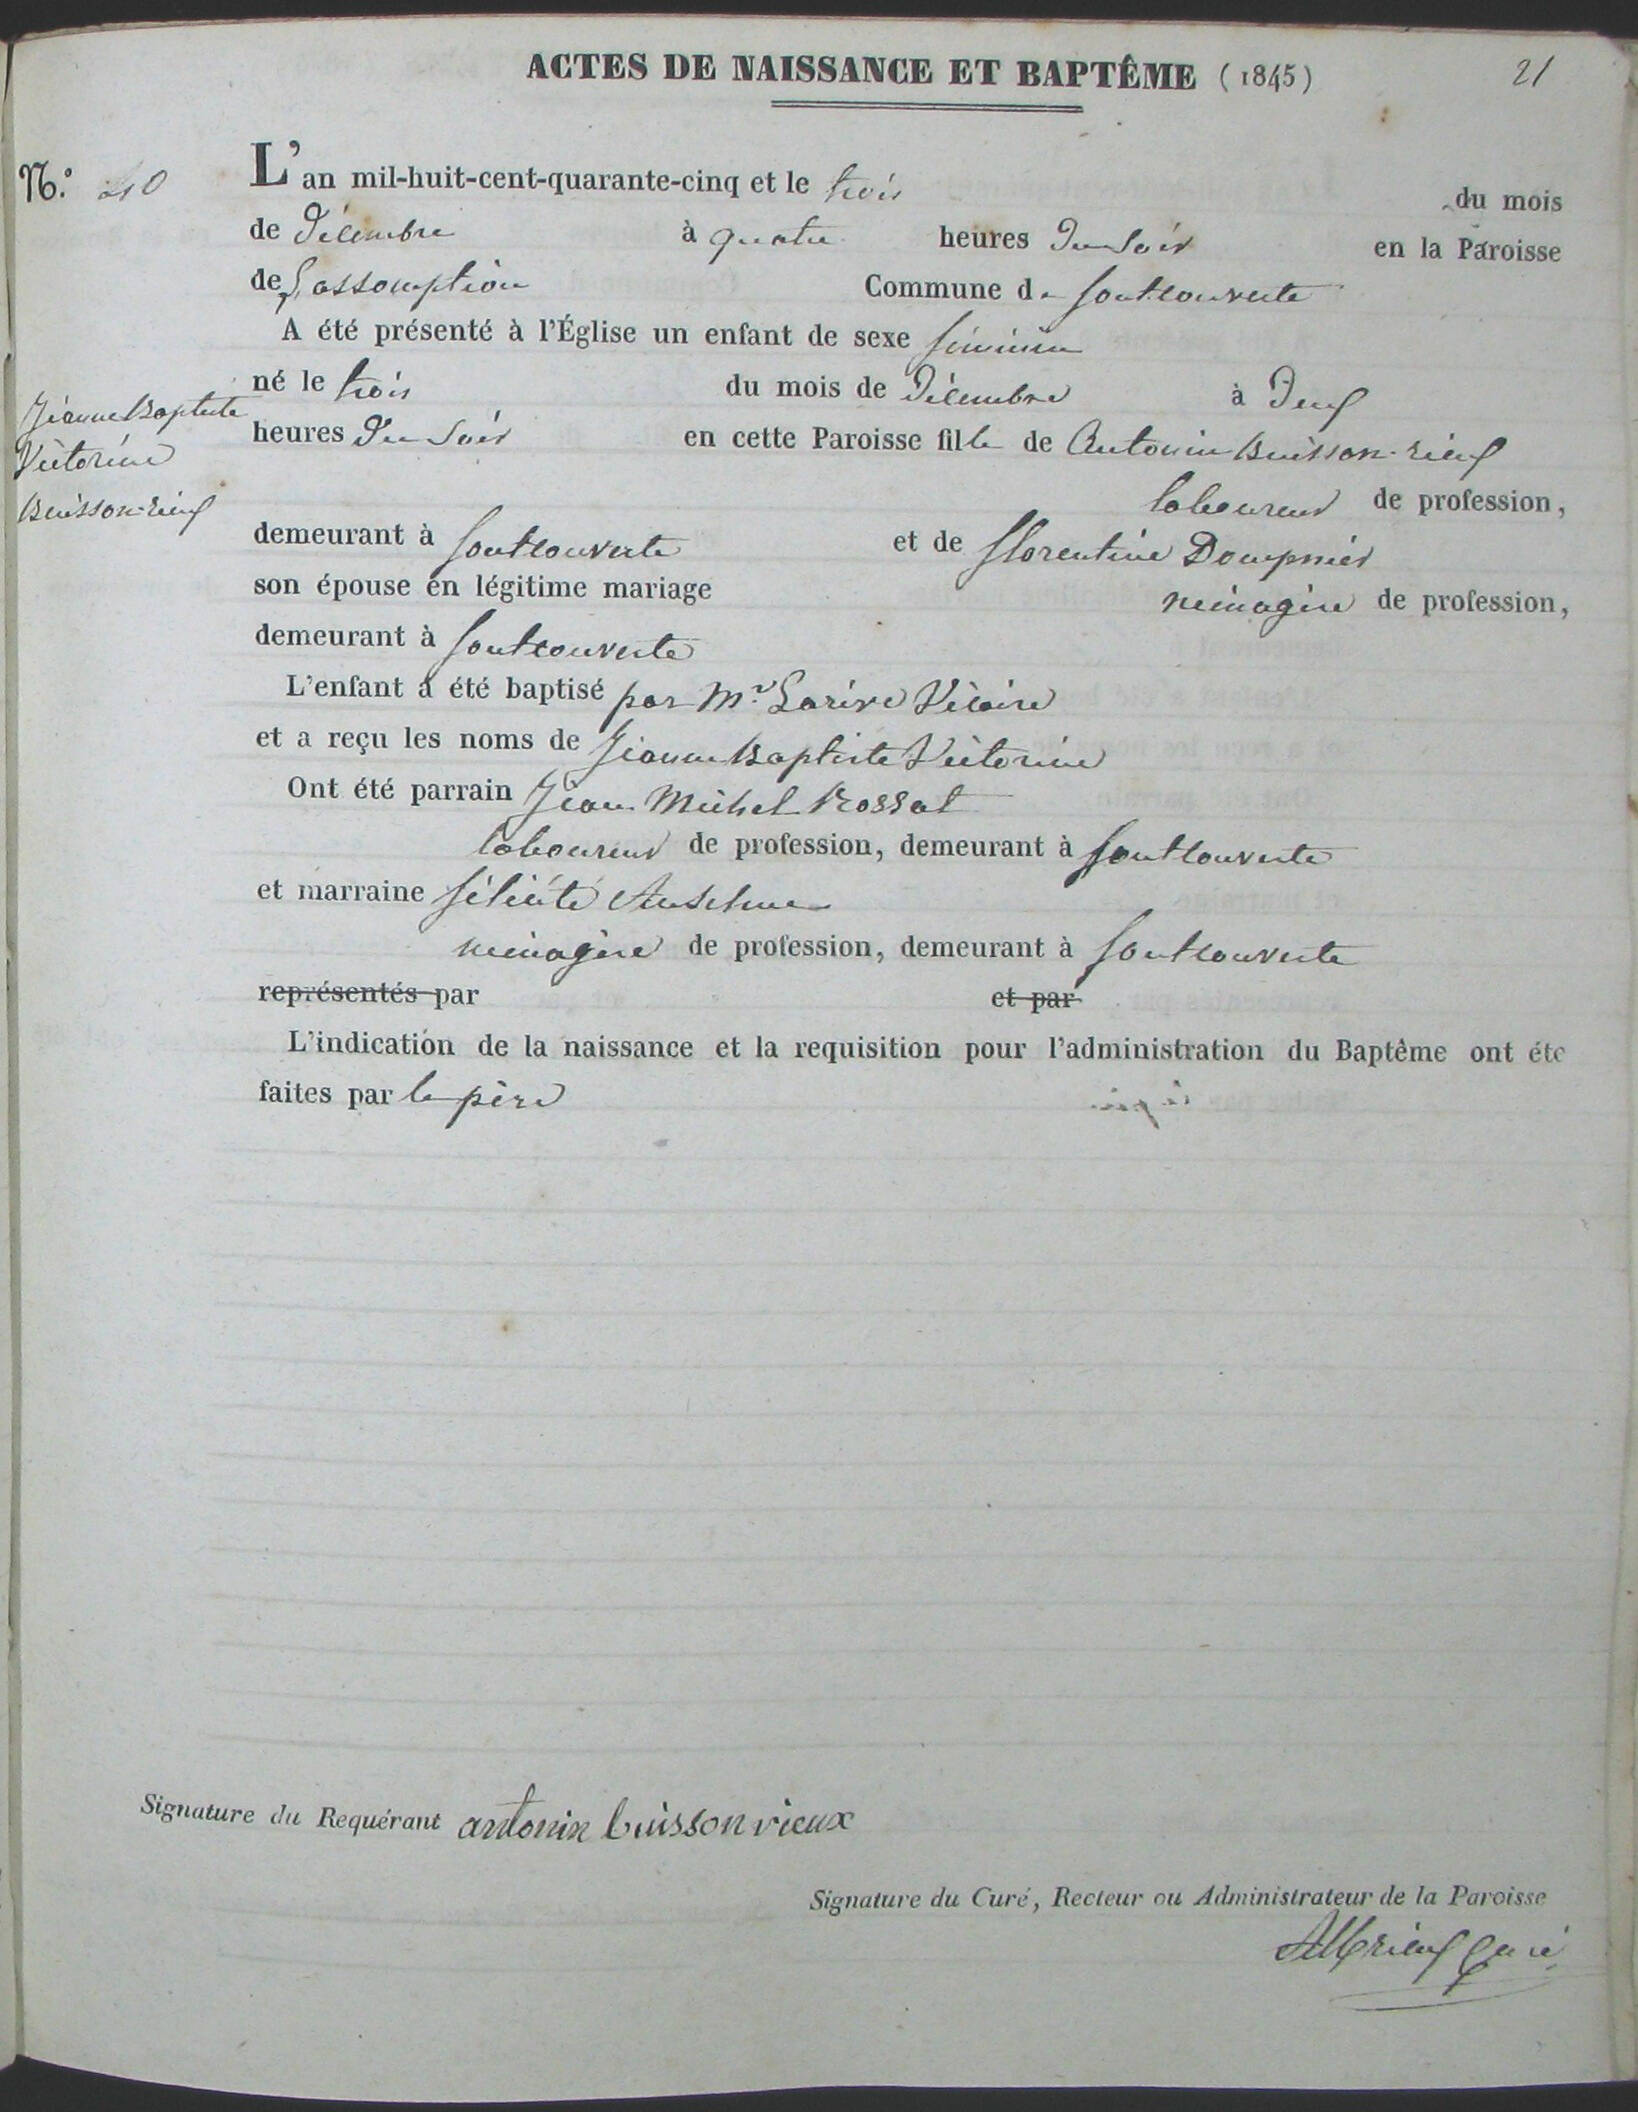 ACTES DE NAISSANCE ET BAPTÊME (1845) 21
N.º 40 L'an mil-huit-cent-quarante-cinq et le trois du mois
de Décembre à quatre heures du soir en la Paroisse
de L'assomption Commune de fontcouverte
A été présenté à l'Église un enfant de sexe féminin
né le trois du mois de Décembre à Deux
heures du soir en cette Paroisse fille de Antonin Buisson-rieux
Jeanne Baptiste
Victorine
Buisson-rieux
laboureur de profession,
demeurant à fontcouverte et de florentine Dompnier
son épouse en légitime mariage ménagère de profession,
demeurant à fontcouverte
L'enfant a été baptisé par Mr. Larive Vicaire
et a reçu les noms de Jeanne Baptiste Victorine
Ont été parrain Jean Michel Rossat
laboureur de profession, demeurant à fontcouverte
et marraine félicité Anselme
ménagère de profession, demeurant à fontcouverte
représentés par et par
L'indication de la naissance et la requisition pour l'administration du Baptême ont éte
faites par le père
Signature du Requérant antonin buisson rieux
Signature du Curé, Recteur ou Administrateur de la Paroisse
curé